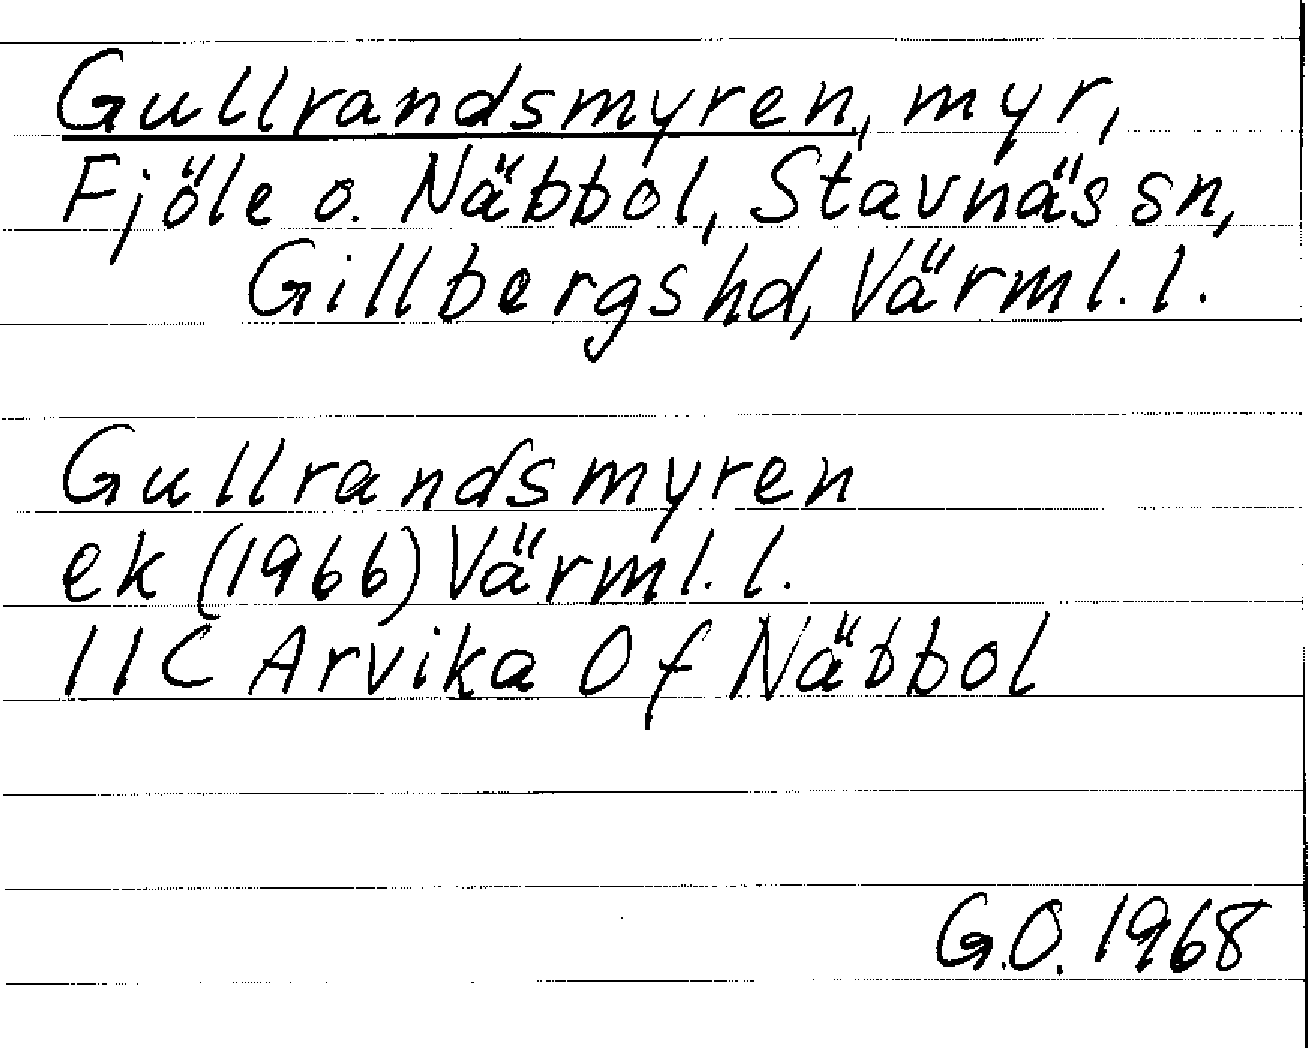 Gullrandsmyren, myr,
Fjöle o. Näbbol, Stavnäs sn,
Gillbergs hd, Värml. l.
Gullrandsmyren
ek (1966) Värml. l.
11C Arvika 0 f Näbbol
G.O. 1968